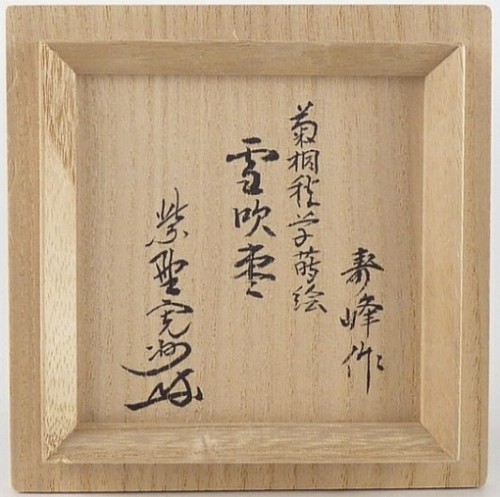 寿峰作
菊桐秋草蒔絵
雪吹棗
紫野寛州